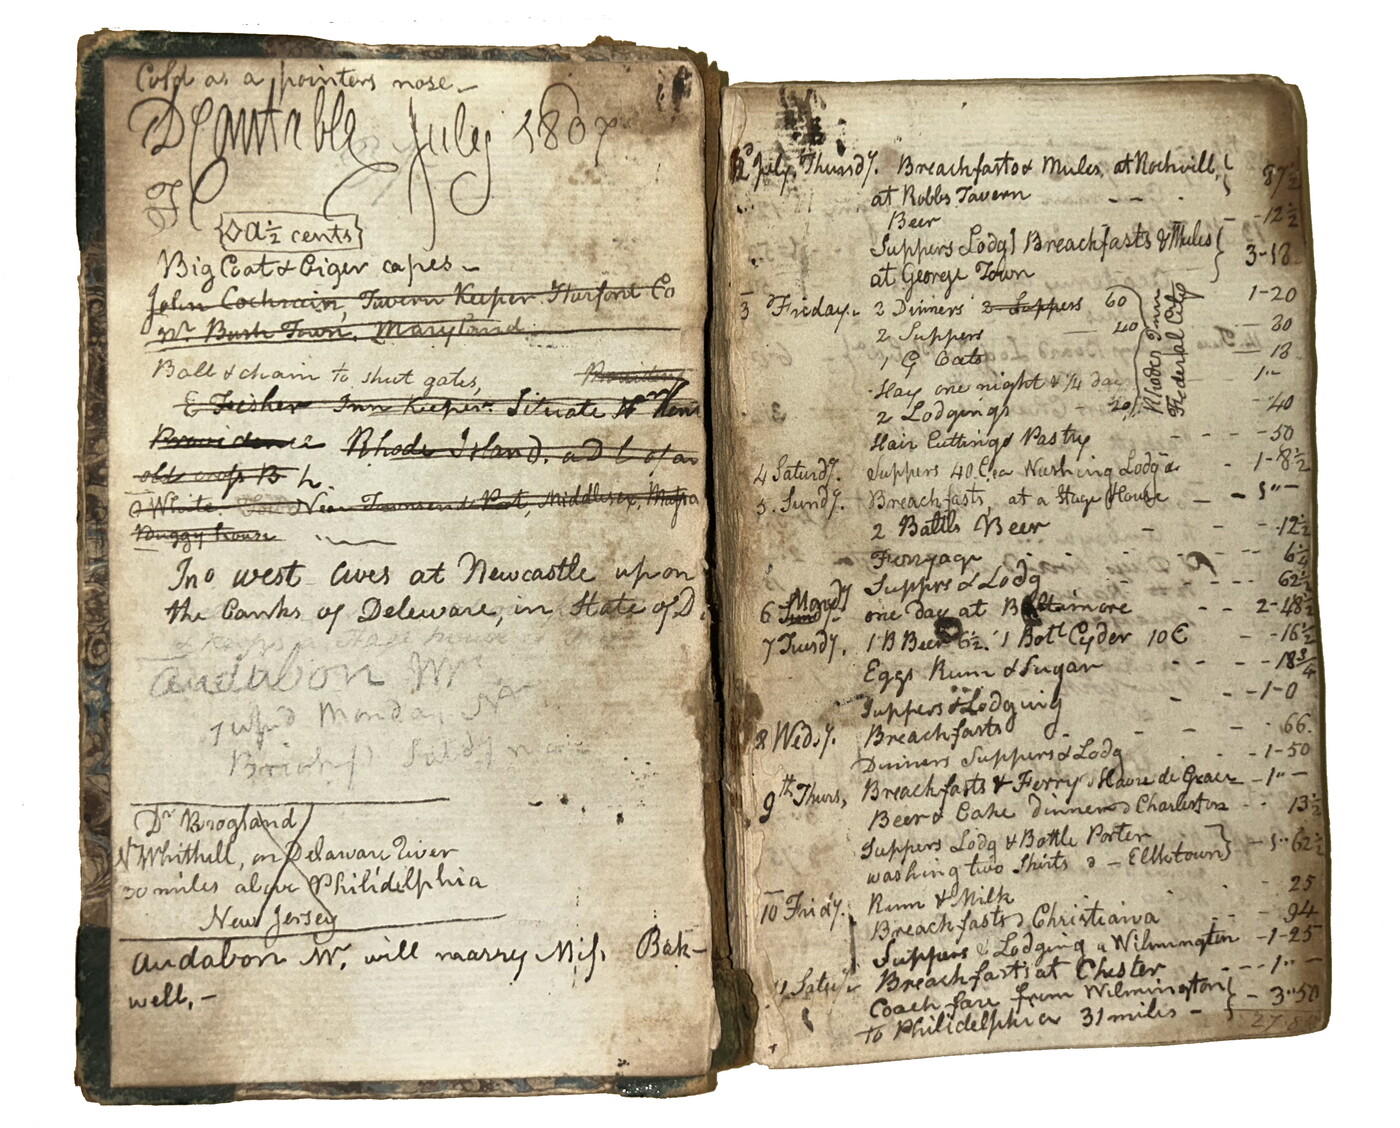 Cold as a pointers nose_
July 1807
a ½ cents
Big Coat & capes _
John Cochrain, Tavern Keeper Harford Co
nr. Bush Town, Maryland
Ball & chain to shut gates,
E Fisher Inn Keeper Situate
Providence Rhode Island.
old crop B h.
White. Near Townsend Post, Middlesex, Massa
Buggy house
Jno west lives at Newcastle upon
the banks of Deleware, in State of D
audabon Mr
Monday
Dr Brogland
Whithill, on Delaware River
30 miles above Philidelphia
New Jersey
Audabon Mr. will marry Miss Bak-
well,-
2d July, Thursdy. Breackfasts & Mules, at Rockvill, 87½
at Robbs Tavern
Beer - -12½
Suppers Lodgs Breackfasts & Mules 3-18
at George Town
3 Friday. 2 Dinners 2 Suppers 60 1-20
2 Suppers — 40 — 30
1 G Oats — 18
Hay one night & ¼ day 1"-
2 Lodgings 20 -40
Rhodes Inn
Federal City
Hair Cutting & Pastry - - - -50
4 Saturdy. Suppers 40 C ea Washing Lodg - 1-8½
5. Sundy. Breackfasts, at a Stage House — - 5"-
2 Battls Beer - - -12½
Ferryage - - 6¼
Suppers & Lodg - - - - 62½
6 Sund Mondy one day at Baltimore - - 2-48½
7 Tuesdy. 1 B Beer 6½. 1 Botl Cyder 10 C - -16½
Eggs Rum & Sugar - - - -18¾
Suppers & Lodging - - -1-0
8 Wedsy. Breackfasts - - - 66.
Dinners Suppers & Lodg - -1-50
9th Thurs, Breackfasts & Ferry Havre de Grace - 1"-
Beer & Cake dinners Charleston - - 13½
Suppers Lodg & Bottle Porter
washing two Shirts - Elktown - 62½
10 Fridy. Rum & Milk 25
Breackfasts Christiana - - - 94
Suppers & Lodging a Wilmington -1-25
11 Satuy. Breackfasts at Chester - - - 1"-
Coach fare from Wilmington - 3"50
to Philidelphia 31 miles -